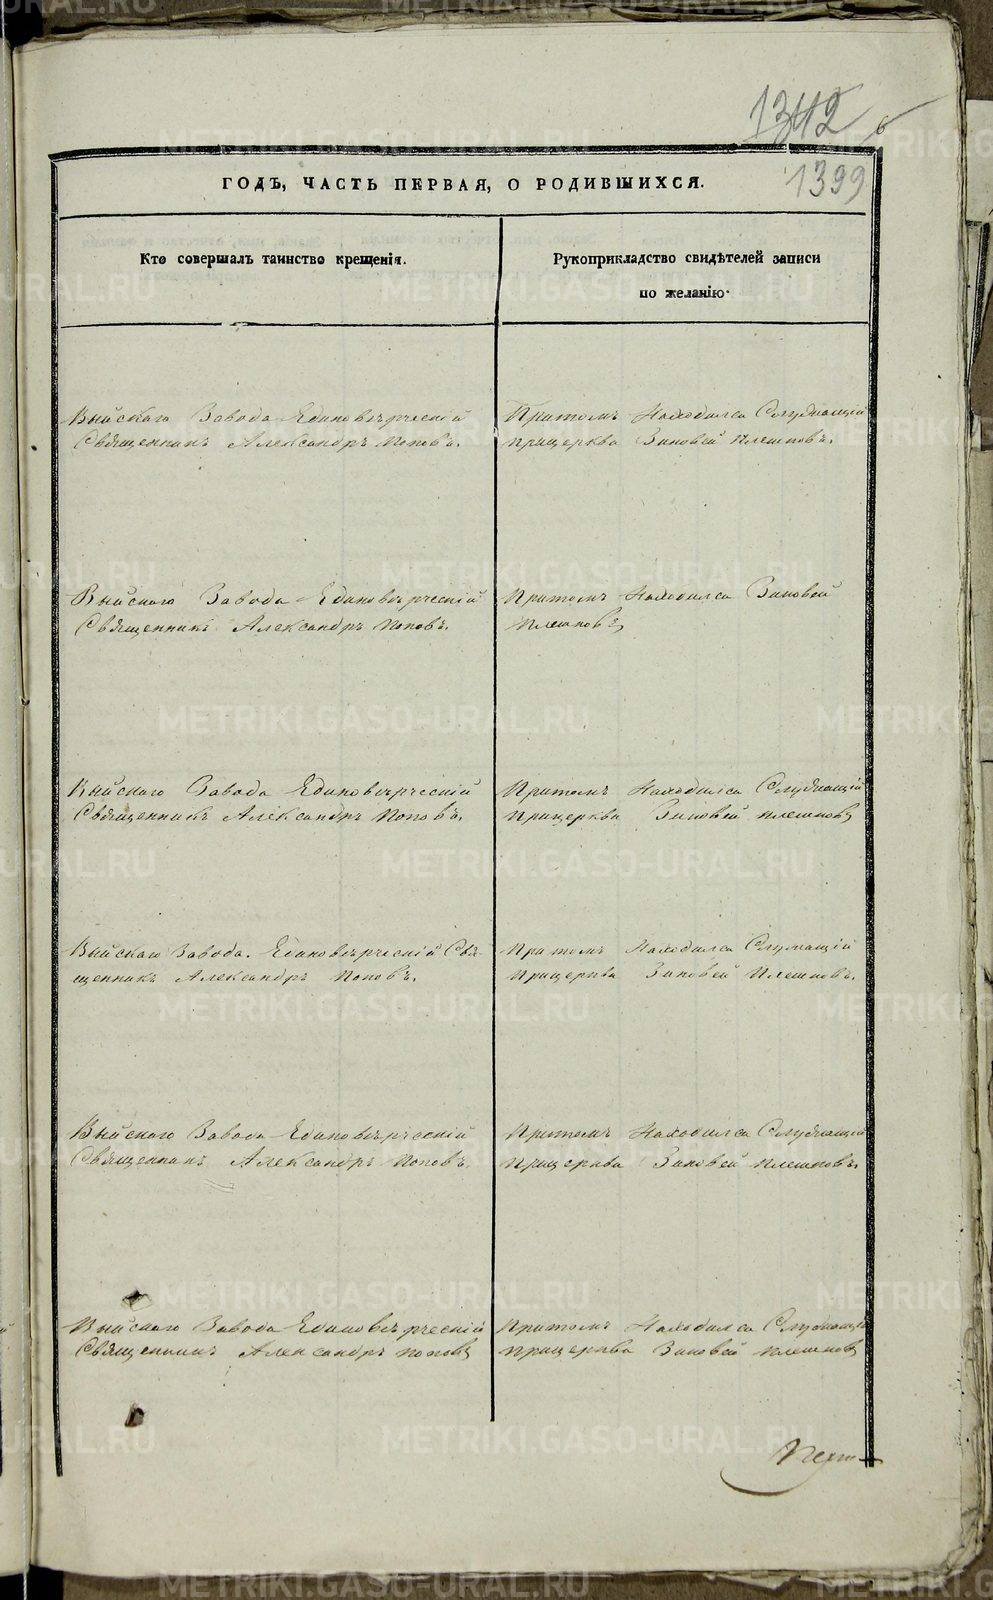 1342
6
1399
ГОДЪ, ЧАСТЬ ПЕРВАЯ, О РОДИВШИХСЯ.
Кто совершалъ таинство крещенія.
Рукоприкладство свидѣтелей записи
по желанію.
Выйскаго Завода Единовѣрческій
Священникъ Александръ Поповъ.
Притомъ Находился Служащій
прицерква Зиновей Плешковъ.
Выйскаго Завода Единовѣрческій
Священникъ Александръ Поповъ.
Притомъ Находился Зиновей
Плешковъ
Выйскаго Завода Единовѣрческій
Священникъ Александръ Поповъ.
Притомъ Находился Служащій
прицерквы Зиновей Плешковъ
Выйскаго Завода. Единовѣрческій Свѣ-
щенникъ Александръ Поповъ.
Притомъ Находился Служащій
прицерква Зиновей Плешковъ.
Выйскаго Завода Единовѣрческій
Священникъ Александръ Поповъ.
Притомъ Находился Служащій
прицерква Зиновей Плешковъ.
Выйскаго Завода Единовѣрческій
Священникъ Александръ Поповъ
Притомъ Находился Служащій
прицерква Зиновей Плешковъ
METRIKI.GASO-URAL.RU